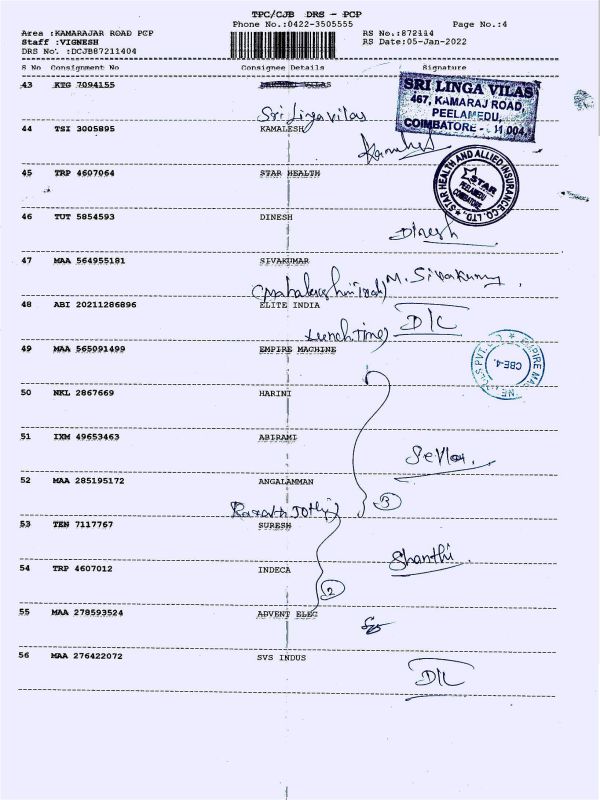 TPC/CJB DRS - PCP
Phone No.:0422-3505555 Page No.:4
Area :KAMARAJAR ROAD PCP RS No.:872114
Staff :VIGNESH RS Date:05-Jan-2022
DRS No. :DCJB87211404
S No Consignment No Consignee Details Signature
43 KTG 7094155 VILAS
Sri Linga vilas
SRI LINGA VILAS
467, KAMARAJ ROAD,
PEELAMEDU,
COIMBATORE - 004
44 TSI 3005895 KAMALESH
45 TRP 4607064 STAR HEALTH
STAR HEALTH AND ALLIED INSURANCE CO. LTD.
STAR
PEELAMEDU
COIMBATORE
46 TUT 5854593 DINESH
Dinesh
47 MAA 564955181 SIVAKUMAR
M. Sivakumar
48 ABI 20211286896 ELITE INDIA
Lunch Time D/L
49 MAA 565091499 EMPIRE MACHINE
CBE-4.
50 NKL 2867669 HARINI
51 IXM 49653463 ABIRAMI
52 MAA 285195172 ANGALAMMAN
3
53 TEN 7117767 SURESH
Shanthi
54 TRP 4607012 INDECA
2
55 MAA 278593524 ADVENT ELEC
56 MAA 276422072 SVS INDUS
D/L